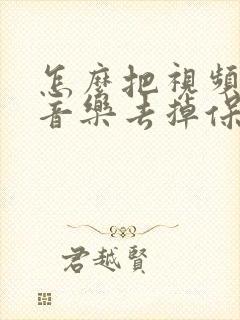 怎麼把視頻
音樂去掉保
君越賢